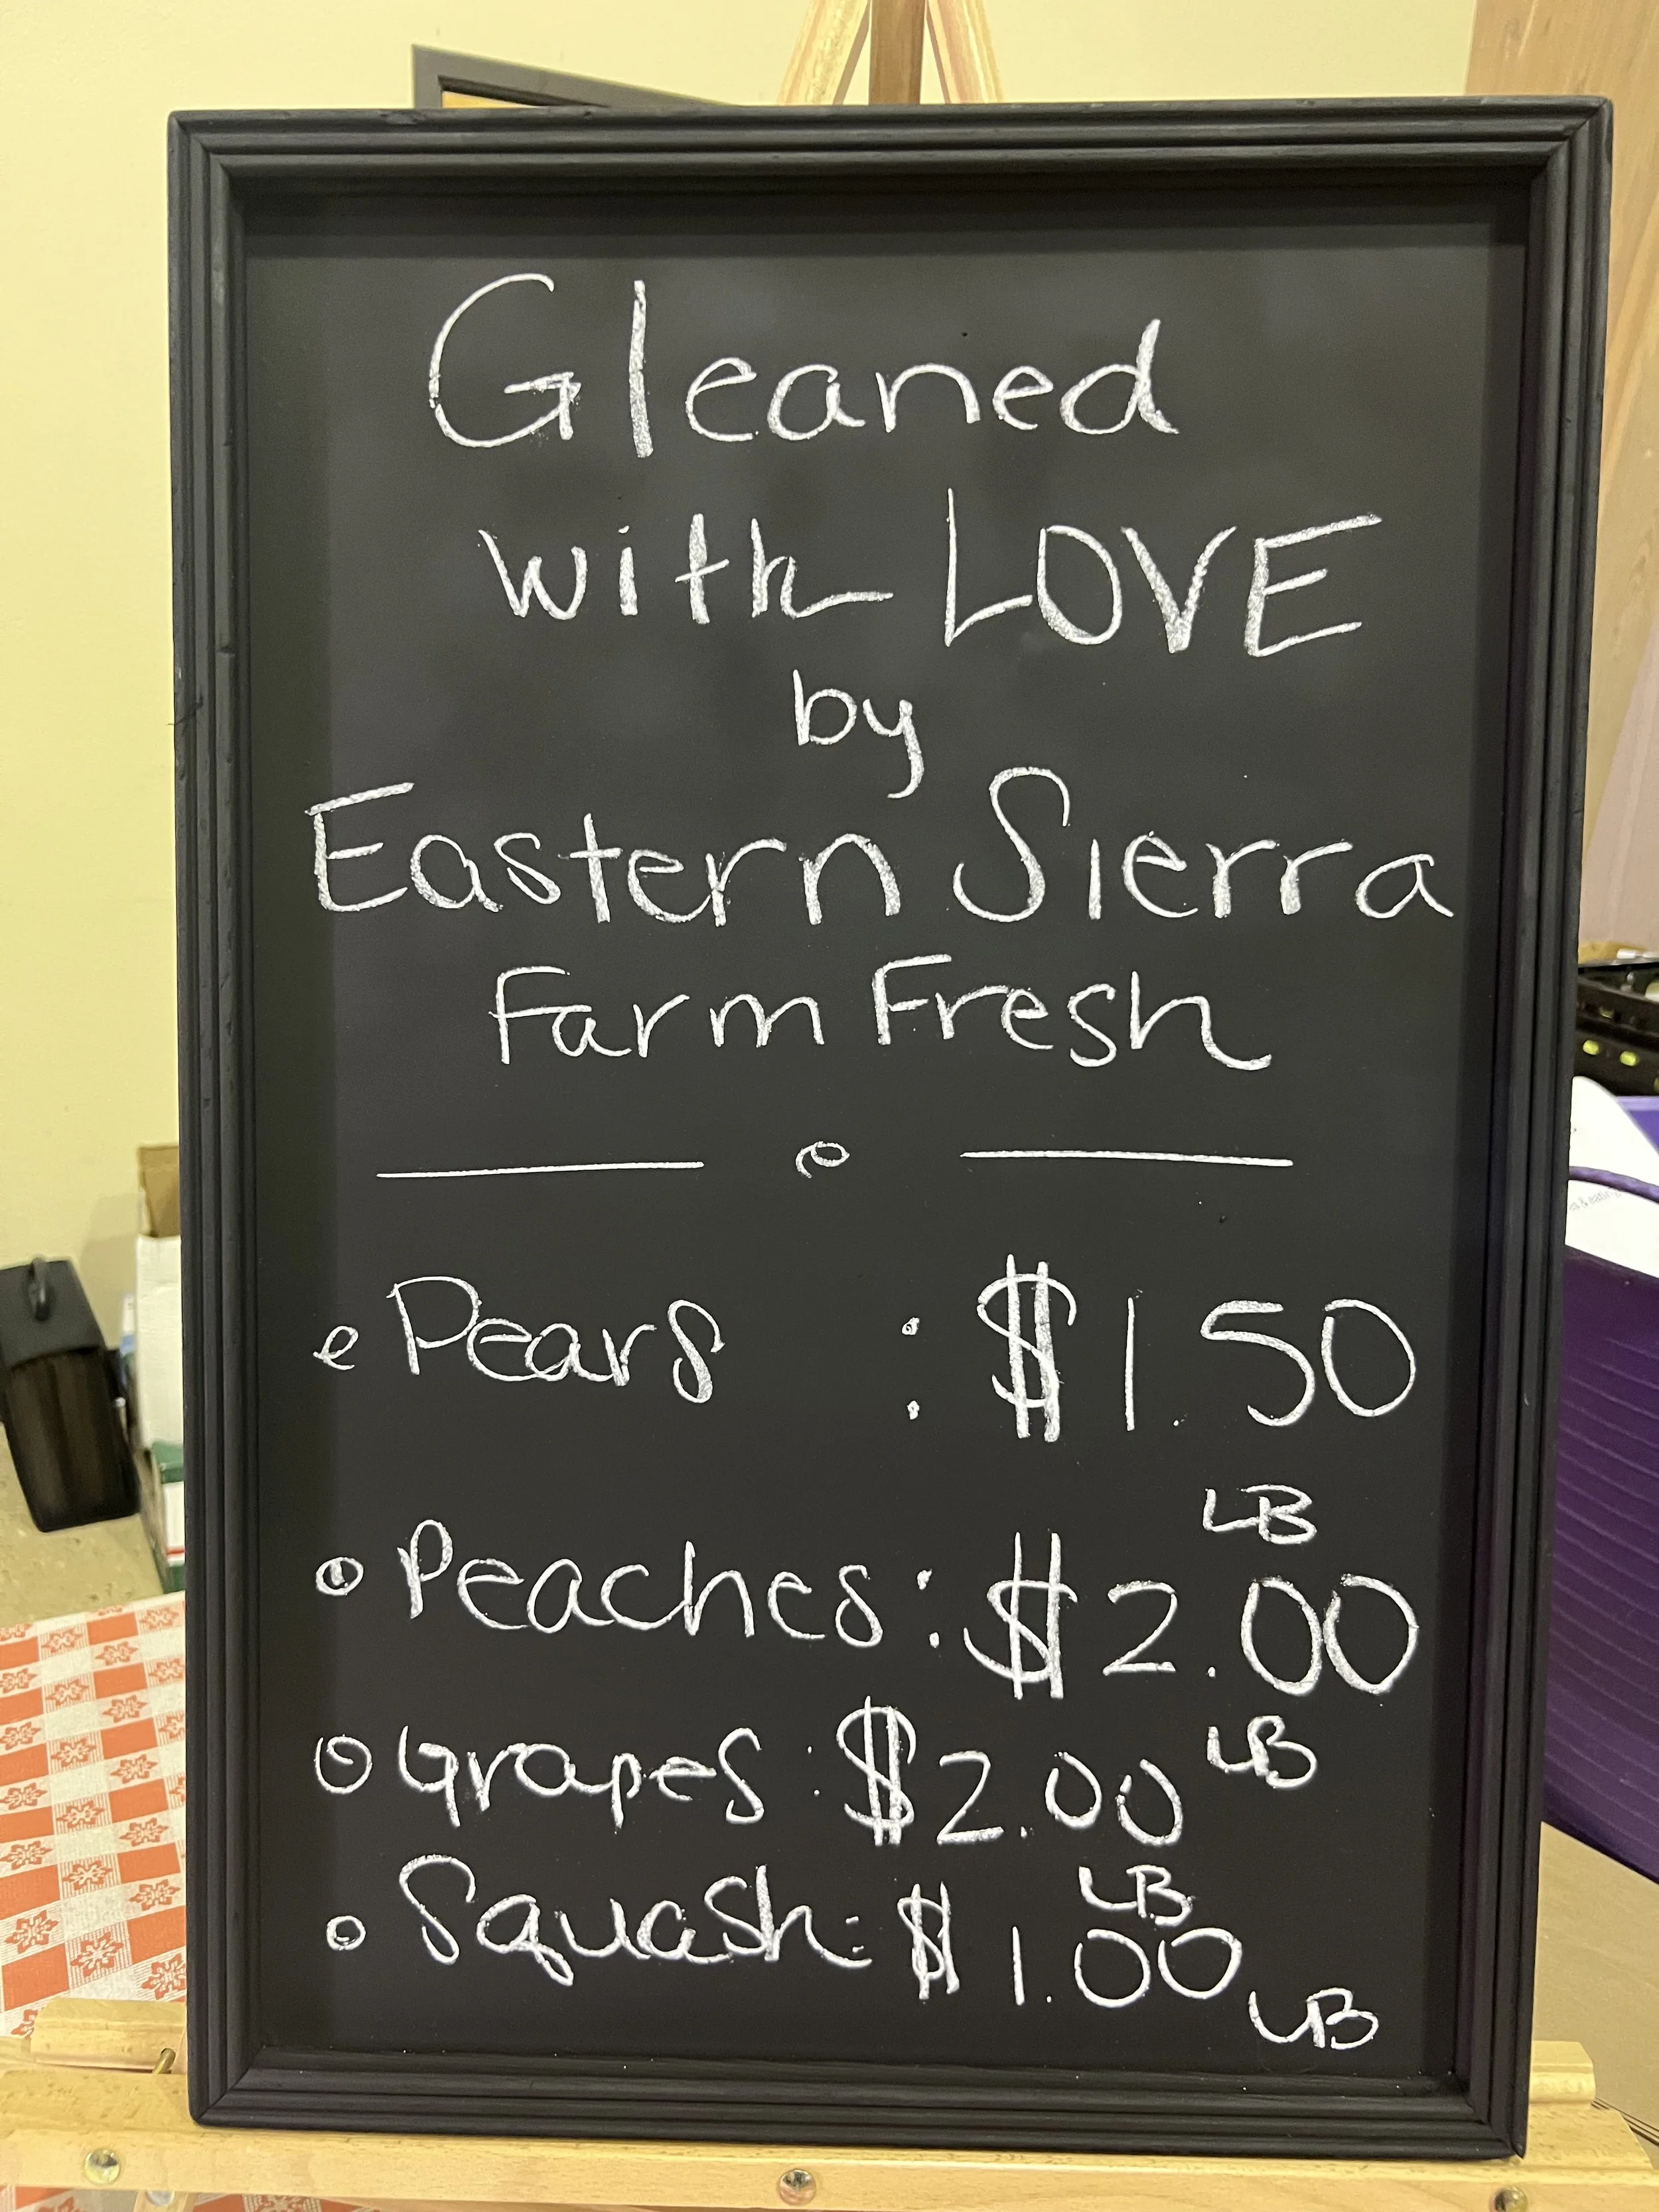 Gleaned
with LOVE
by
Eastern Sierra
Farm Fresh
Pears : $1.50
LB
Peaches: $2.00
LB
Grapes: $2.00
LB
Squash: $1.00
LB